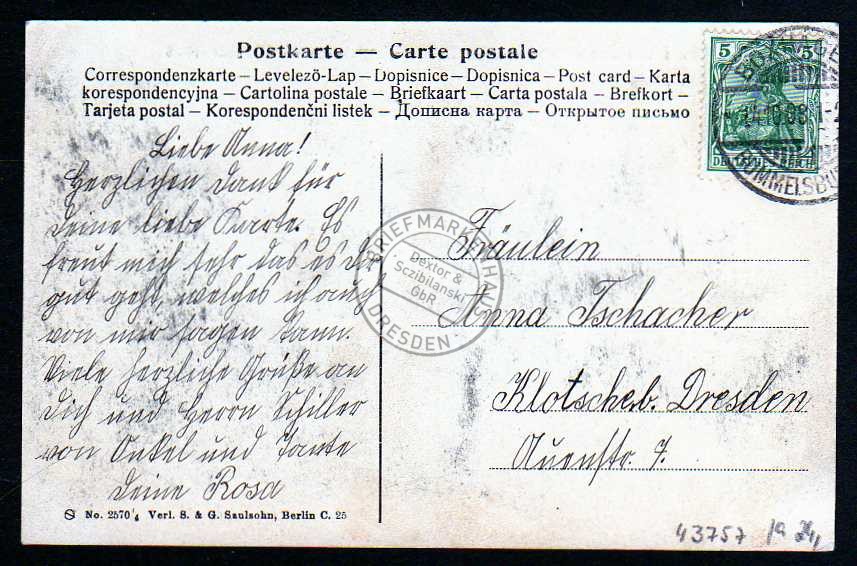 Postkarte — Carte postale
Correspondenzkarte – Levelezö-Lap – Dopisnice – Dopisnica – Post card – Karta
korespondencyjna – Cartolina postale – Briefkaart – Carta postala – Brefkort –
Tarjeta postal – Korespondenčni listek – Дописна карта – Открытое письмо
5 5
DEUTSCHES REICH
14.10.06
RUMMELSBU
Liebe Anna!
Herzlichen Dank für
Deine liebe Karte. Es
freut mich sehr das es dir
gut geht, welches ich auch
von mir sagen kann.
Viele herzliche Grüße an
Dich und Herrn Schiller
von Onkel und Tante
Deine Rosa
Fräulein
Anna Tschacher
Klotscheb. Dresden
Auenstr. 7.
BRIEFMARKENHAUS
Dextor &
Sczibilanski
GbR
DRESDEN
No. 2570/6 Verl. S. & G. Saulsohn, Berlin C. 25
43757